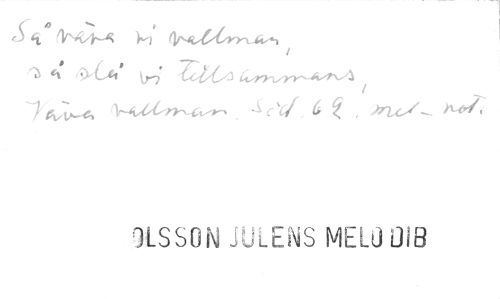 Så väva vi vallman,
så slå vi tillsammans,
Väva vallman. Sid. 62. mel-not.
OLSSON JULENS MELODIB